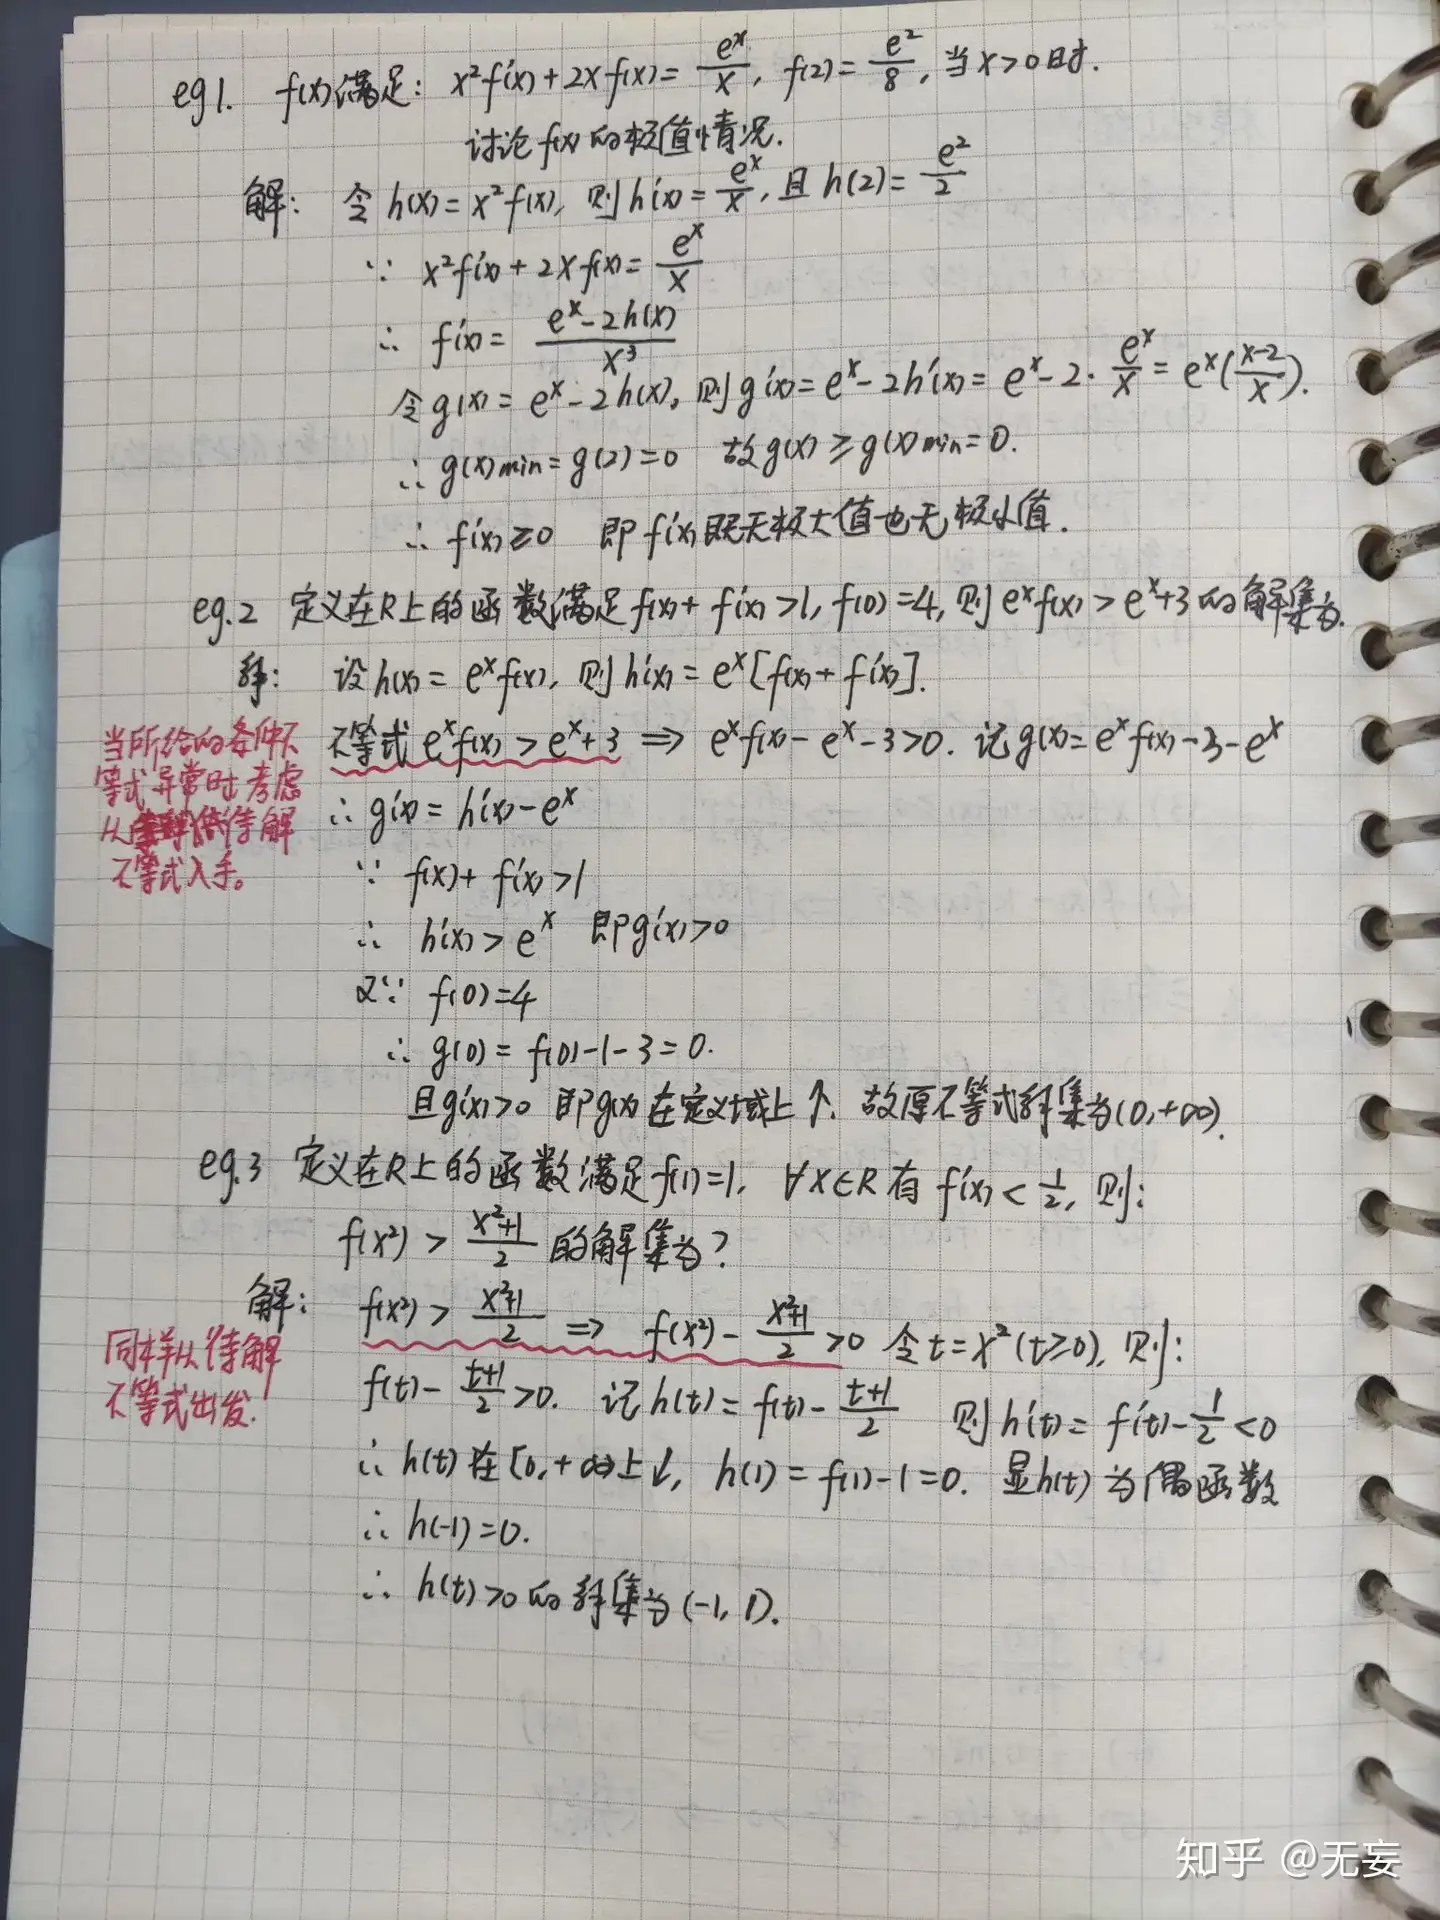 eg1. f(x)满足: x²f'(x)+2xf(x)=e^x/x, f(2)=e²/8, 当x>0时.
讨论f(x)的极值情况.
解: 令h(x)=x²f(x), 则h'(x)=e^x/x, 且h(2)=e²/2
∵ x²f'(x)+2xf(x)=e^x/x
∴ f'(x)=(e^x-2h(x))/x³
令g(x)=e^x-2h(x), 则g'(x)=e^x-2h'(x)=e^x-2·e^x/x=e^x((x-2)/x).
∴ g(x)min=g(2)=0 故g(x)≥g(x)min=0.
∴ f'(x)≥0 即f(x)既无极大值也无极小值.
eg.2 定义在R上的函数满足f(x)+f'(x)>1, f(0)=4, 则e^xf(x)>e^x+3的解集为.
解: 设h(x)=e^xf(x), 则h'(x)=e^x[f(x)+f'(x)].
不等式e^xf(x)>e^x+3 ⇒ e^xf(x)-e^x-3>0. 记g(x)=e^xf(x)-3-e^x
当所给的条件不
等式异常时考虑
从待解
不等式入手。
∴ g'(x)=h'(x)-e^x
∵ f(x)+f'(x)>1
∴ h'(x)>e^x 即g'(x)>0
又∵ f(0)=4
∴ g(0)=f(0)-1-3=0.
且g'(x)>0 即g(x)在定义域上↑. 故原不等式解集为(0,+∞).
eg.3 定义在R上的函数满足f(1)=1, ∀x∈R有f'(x)<1/2, 则:
f(x²)>(x²+1)/2的解集为?
解: f(x²)>(x²+1)/2 ⇒ f(x²)-(x²+1)/2>0 令t=x²(t≥0), 则:
同样从待解
不等式出发.
f(t)-(t+1)/2>0. 记h(t)=f(t)-(t+1)/2 则h'(t)=f'(t)-1/2<0
∴ h(t)在[0,+∞)上↓, h(1)=f(1)-1=0. 显h(t)为偶函数
∴ h(-1)=0.
∴ h(t)>0的解集为(-1,1).
知乎 @无妄